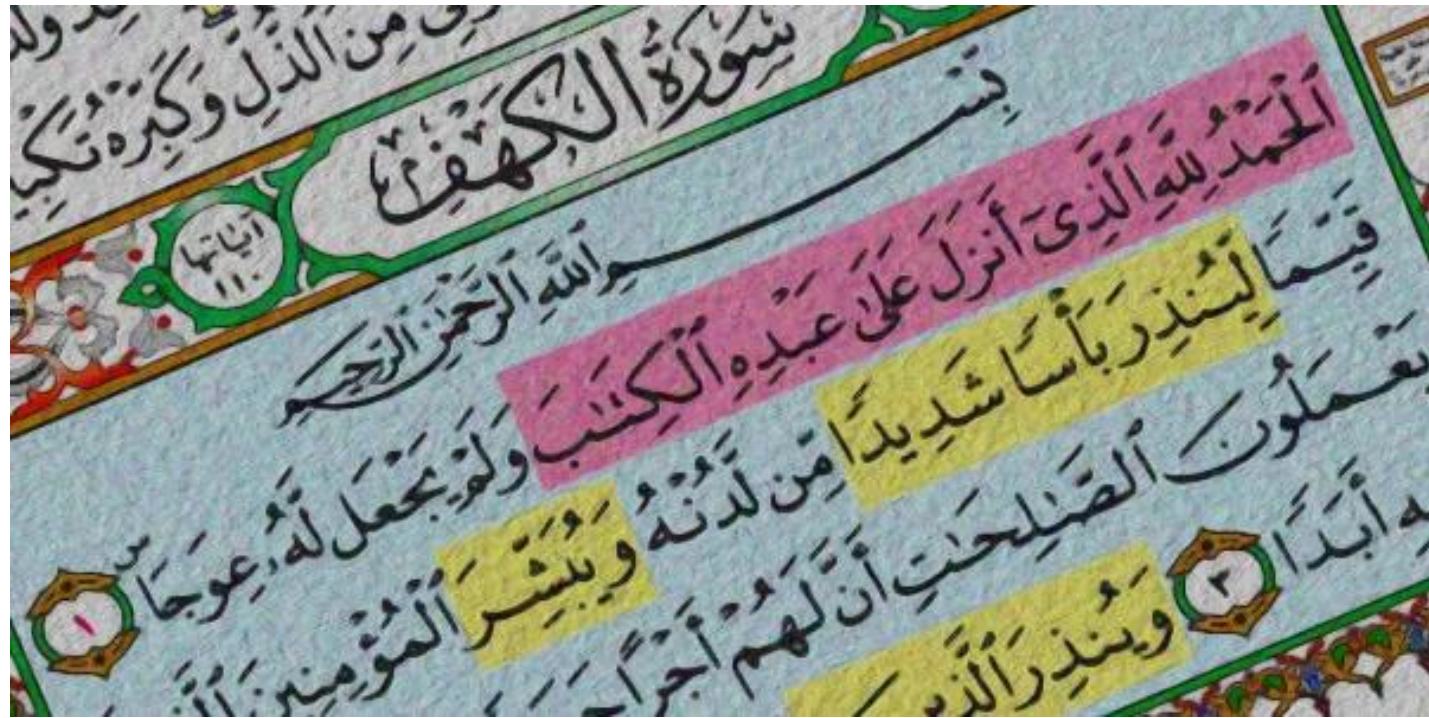 مِنَ الذُّلِّ وَكَبِّرْهُ
سُورَةُ الكَهْفِ
آيَاتُهَا
١١٠
بِسْمِ ٱللَّهِ ٱلرَّحْمَٰنِ ٱلرَّحِيمِ
ٱلْحَمْدُ لِلَّهِ ٱلَّذِىٓ أَنزَلَ عَلَىٰ عَبْدِهِ ٱلْكِتَٰبَ وَلَمْ يَجْعَل لَّهُۥ عِوَجَاۜ ١
قَيِّمًا لِّيُنذِرَ بَأْسًا شَدِيدًا مِّن لَّدُنْهُ وَيُبَشِّرَ ٱلْمُؤْمِنِينَ
يَعْمَلُونَ ٱلصَّٰلِحَٰتِ أَنَّ لَهُمْ أَجْرًا
أَبَدًا ٣ وَيُنذِرَ ٱلَّذِينَ